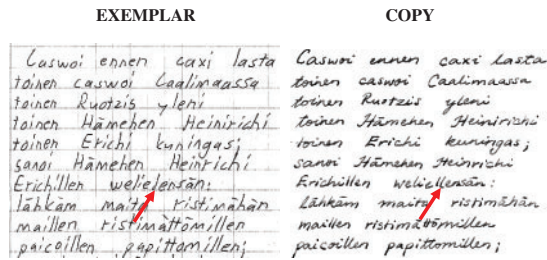 EXEMPLAR
Caswoi ennen caxi lasta
toinen caswoi Caalimaassa
toinen Ruotzis yleni
toinen Hämehen Heinirichi
toinen Erichi kuningas;
sanoi Hämehen Heinrichi
Erichillen welielensän:
lähkäm maita ristimähän
maillen ristimättömillen
paicoillen papittomillen;
COPY
Caswoi ennen caxi lasta
toinen caswoi Caalimaassa
toinen Ruotzis yleni
toinen Hämehen Heinirichi
toinen Erichi kuningas;
sanoi Hämehen Heinrichi
Erichillen weliellensän:
lähkäm maita ristimähän
maillen ristimättömillen
paicoillen papittomillen;